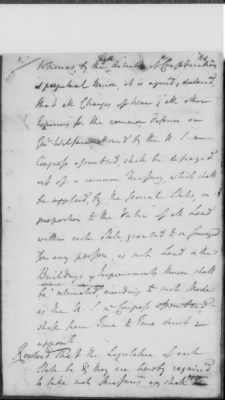 Whereas, by the 8th Article of Confederation
& perpetual Union, it is agreed & declared,
that all Charges of War & all other
Expences for the common defence or
Genl Welfare & allowed by the U. S. in
Congress assembled, shall be defrayed
out of a common Treasury, which shall
be supplied, by the several States, in
proportion to the Value of all Land
within each State, granted to or surveyed
for any person, as such Land & the
Buildings & Improvements thereon shall
be estimated, according to such Mode
as the U. S. in Congress assembled,
shall from Time to Time direct &
appoint
Resolved That the Legislature of each
State be & they are hereby required
to take such Measures, as shall